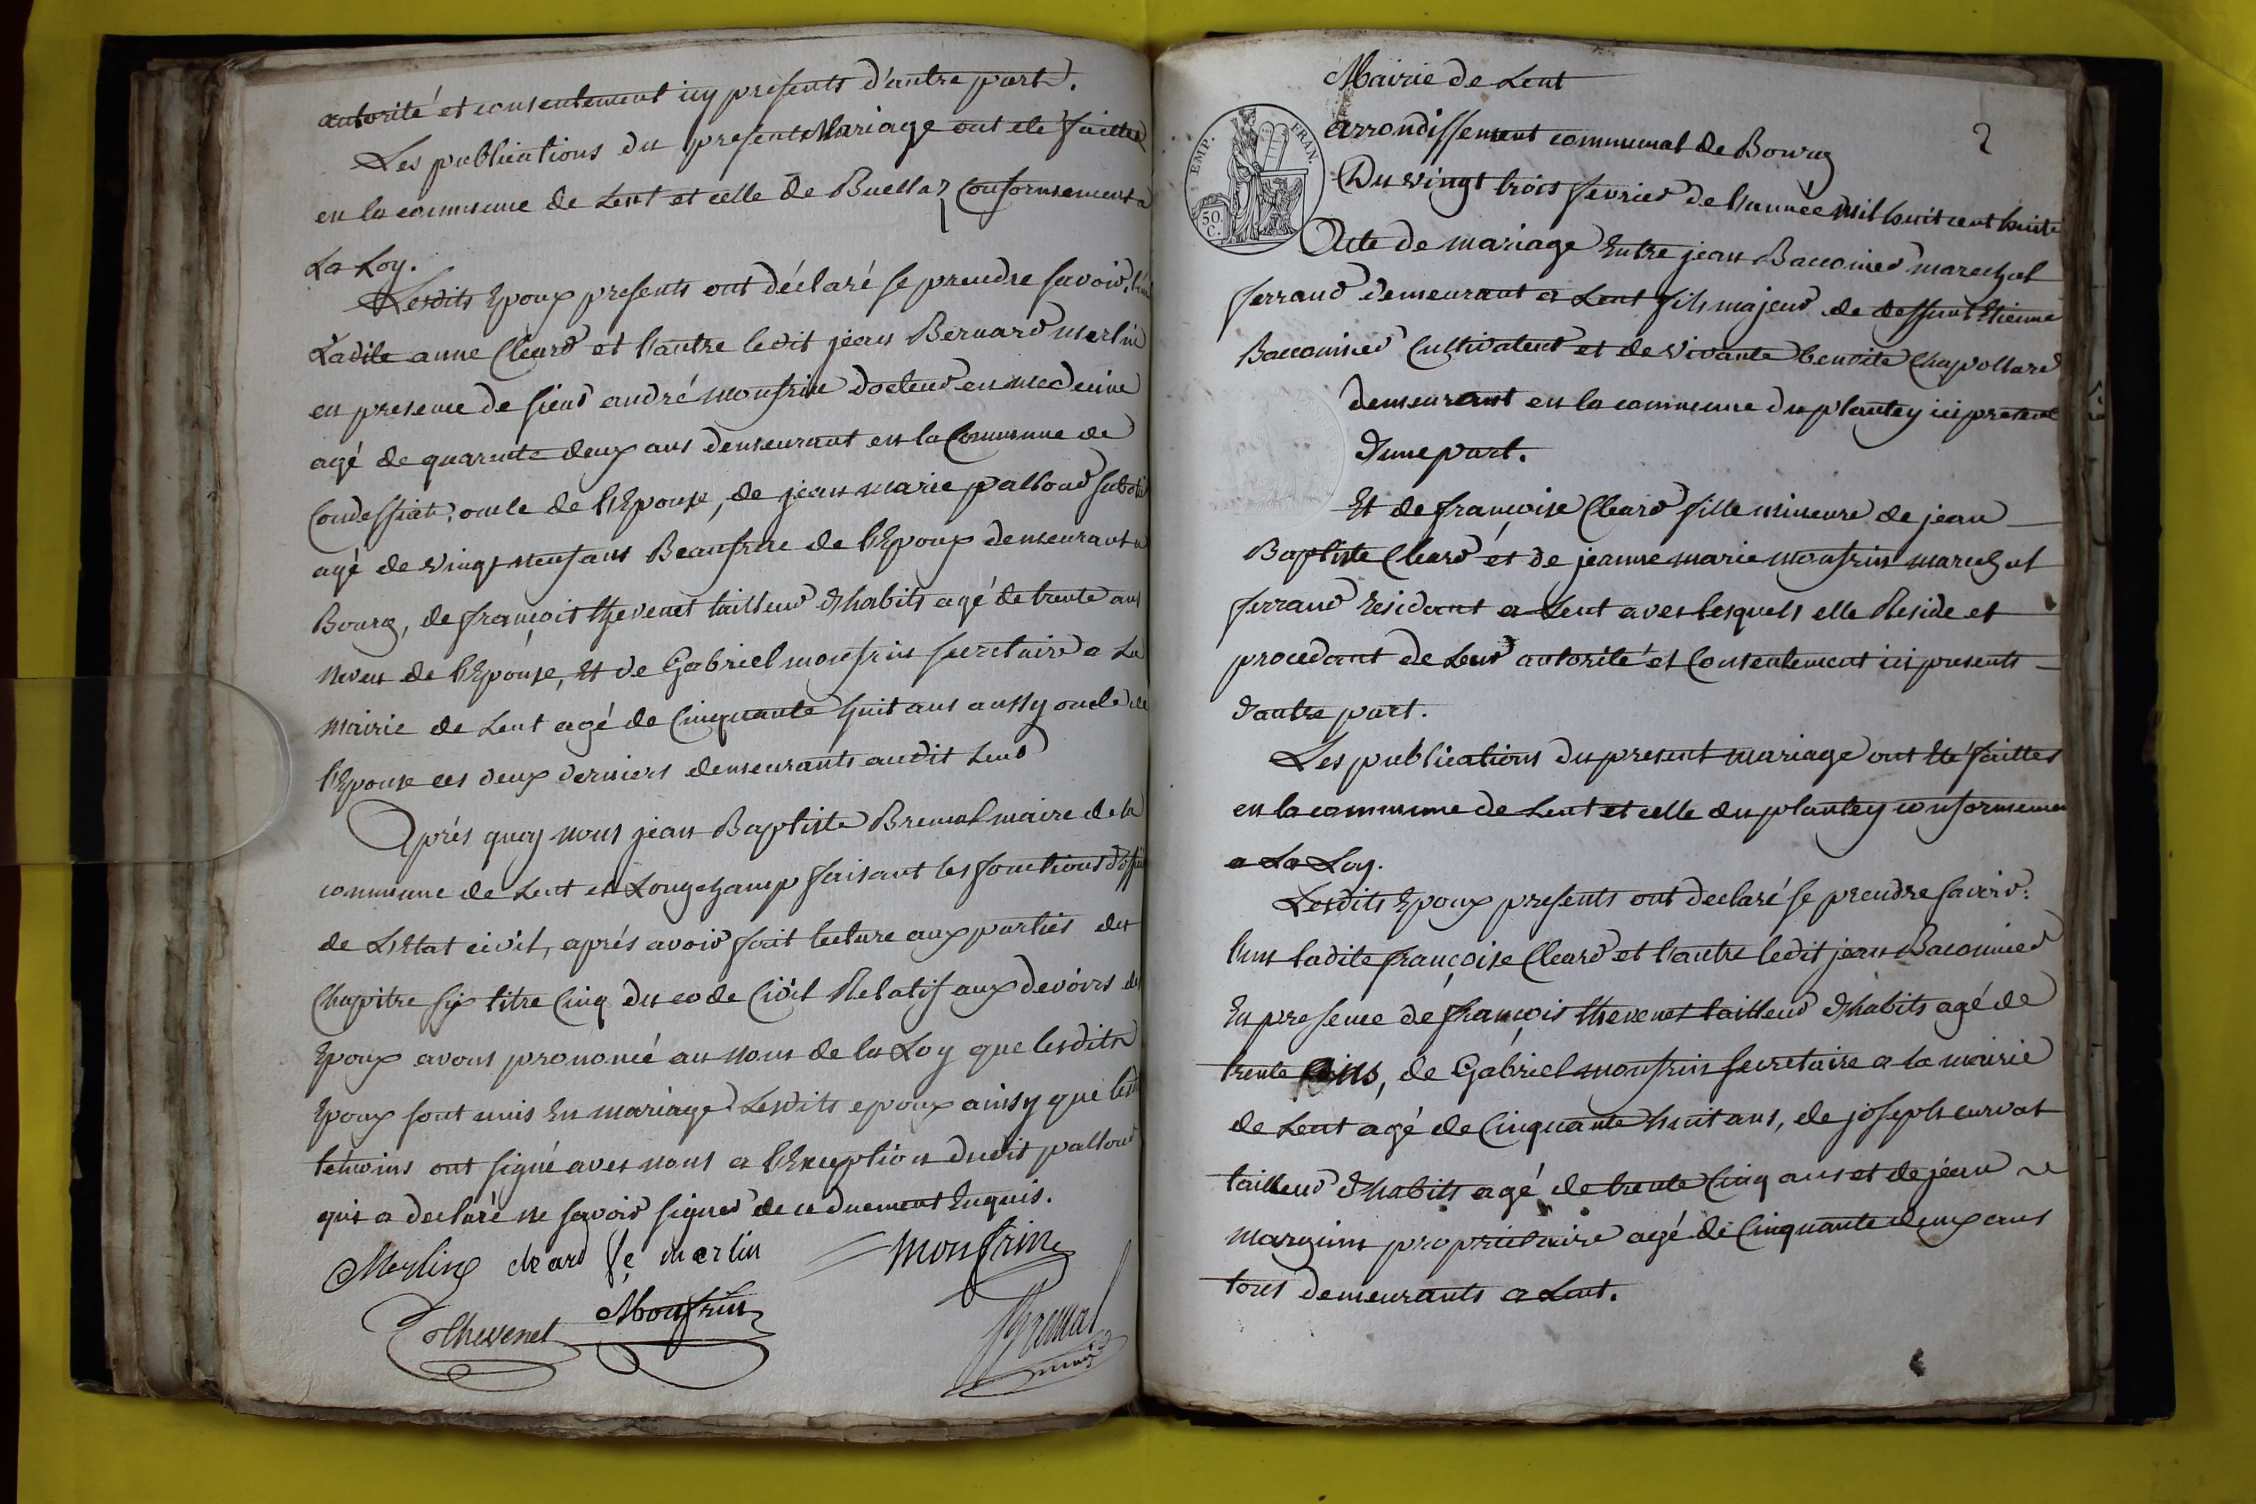 autorité et consentement icy presents d'autre part.
Les publications du present Mariage ont été faittes
en la commune de Lent et celle de Buellaz Conformement a
La Loy.
Lesdits Epoux presents ont déclaré se prendre savoir, l'un
Ladite anne Cleard et l'autre ledit jean Bernard Merlin
en presence de sieur andré monfrin docteur en medecine
agé de quarente deux ans demeurant en la Commune de
Condessiat, oncle de l'Epouse, de jean marie palloud
agé de vingt neuf ans Beaufrere de l'Epoux demeurant a
Bourg, de françois thevenet tailleur d'habits agé de trente ans
neveu de l'Epouse, Et de Gabriel monfrin secretaire a La
Mairie de Lent agé de Cinquante huit ans aussy oncle de
l'Epouse ces deux derniers demeurants audit Lent
Après quoy nous jean Baptiste Bremal maire de la
commune de Lent et Longchamp faisant les fonctions d'offi
de L'Etat civil, après avoir fait lecture aux parties du
Chapitre six titre Cinq du code Civil Relatif aux devoirs des
Epoux avons prononcé au nom de la Loy que lesdits
Epoux sont unis En mariage Lesdits epoux ainsy que les
temoins ont signé avec nous a l'Exception dudit palloud
qui a declaré ne savoir signer de ce duement Enquis.
Merlin cleard fe merlin monfrin
Thevenet Monfrin Bremal
maire
Mairie de Lent
arrondissement communal de Bourg
2
EMP. FRAN.
50 C.
Du vingt trois fevrier de l'année mil huit cent huit
Acte de mariage Entre jean Baconnier marechal
ferrand demeurant a Lent fils majeur de deffunt Etienne
Baconnier Cultivateur et de vivante benoite Chapolard
demeurant en la commune du plantey ici present
d'une part.
Et de françoise Cleard fille mineure de jean
Baptiste Cleard et de jeanne marie monfrin marechal
ferrand residant a Lent avec lesquels elle Reside et
procedant de Leur autorité et Consentement ici presents
d'autre part.
Les publications du present mariage ont Eté faittes
en la commune de Lent et celle du plantey conformement
a La Loy.
Lesdits Epoux presents ont declaré se prendre savoir:
l'un ladite françoise Cleard et l'autre ledit jean Baconnier
En presence de françois thevenet tailleur d'habits agé de
trente ans, de Gabriel monfrin secretaire a la mairie
de Lent agé de Cinquante huit ans, de joseph curvat
tailleur d'habits agé de trente Cinq ans et de jean
marguin proprietaire agé de Cinquante deux ans
tous demeurants a Lent.